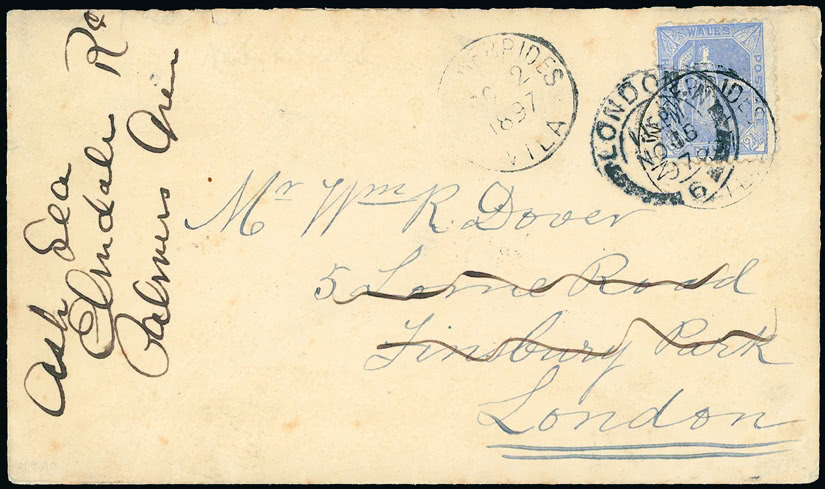 Mr Wm R Dover
5 Lorne Road
Finsbury Park
London
Ash Lea
Elmdale Rd
Palmers Green
HEBRIDES
2
1897
VILA
WALES
POSTAGE
LONDON
NO 16
97
6